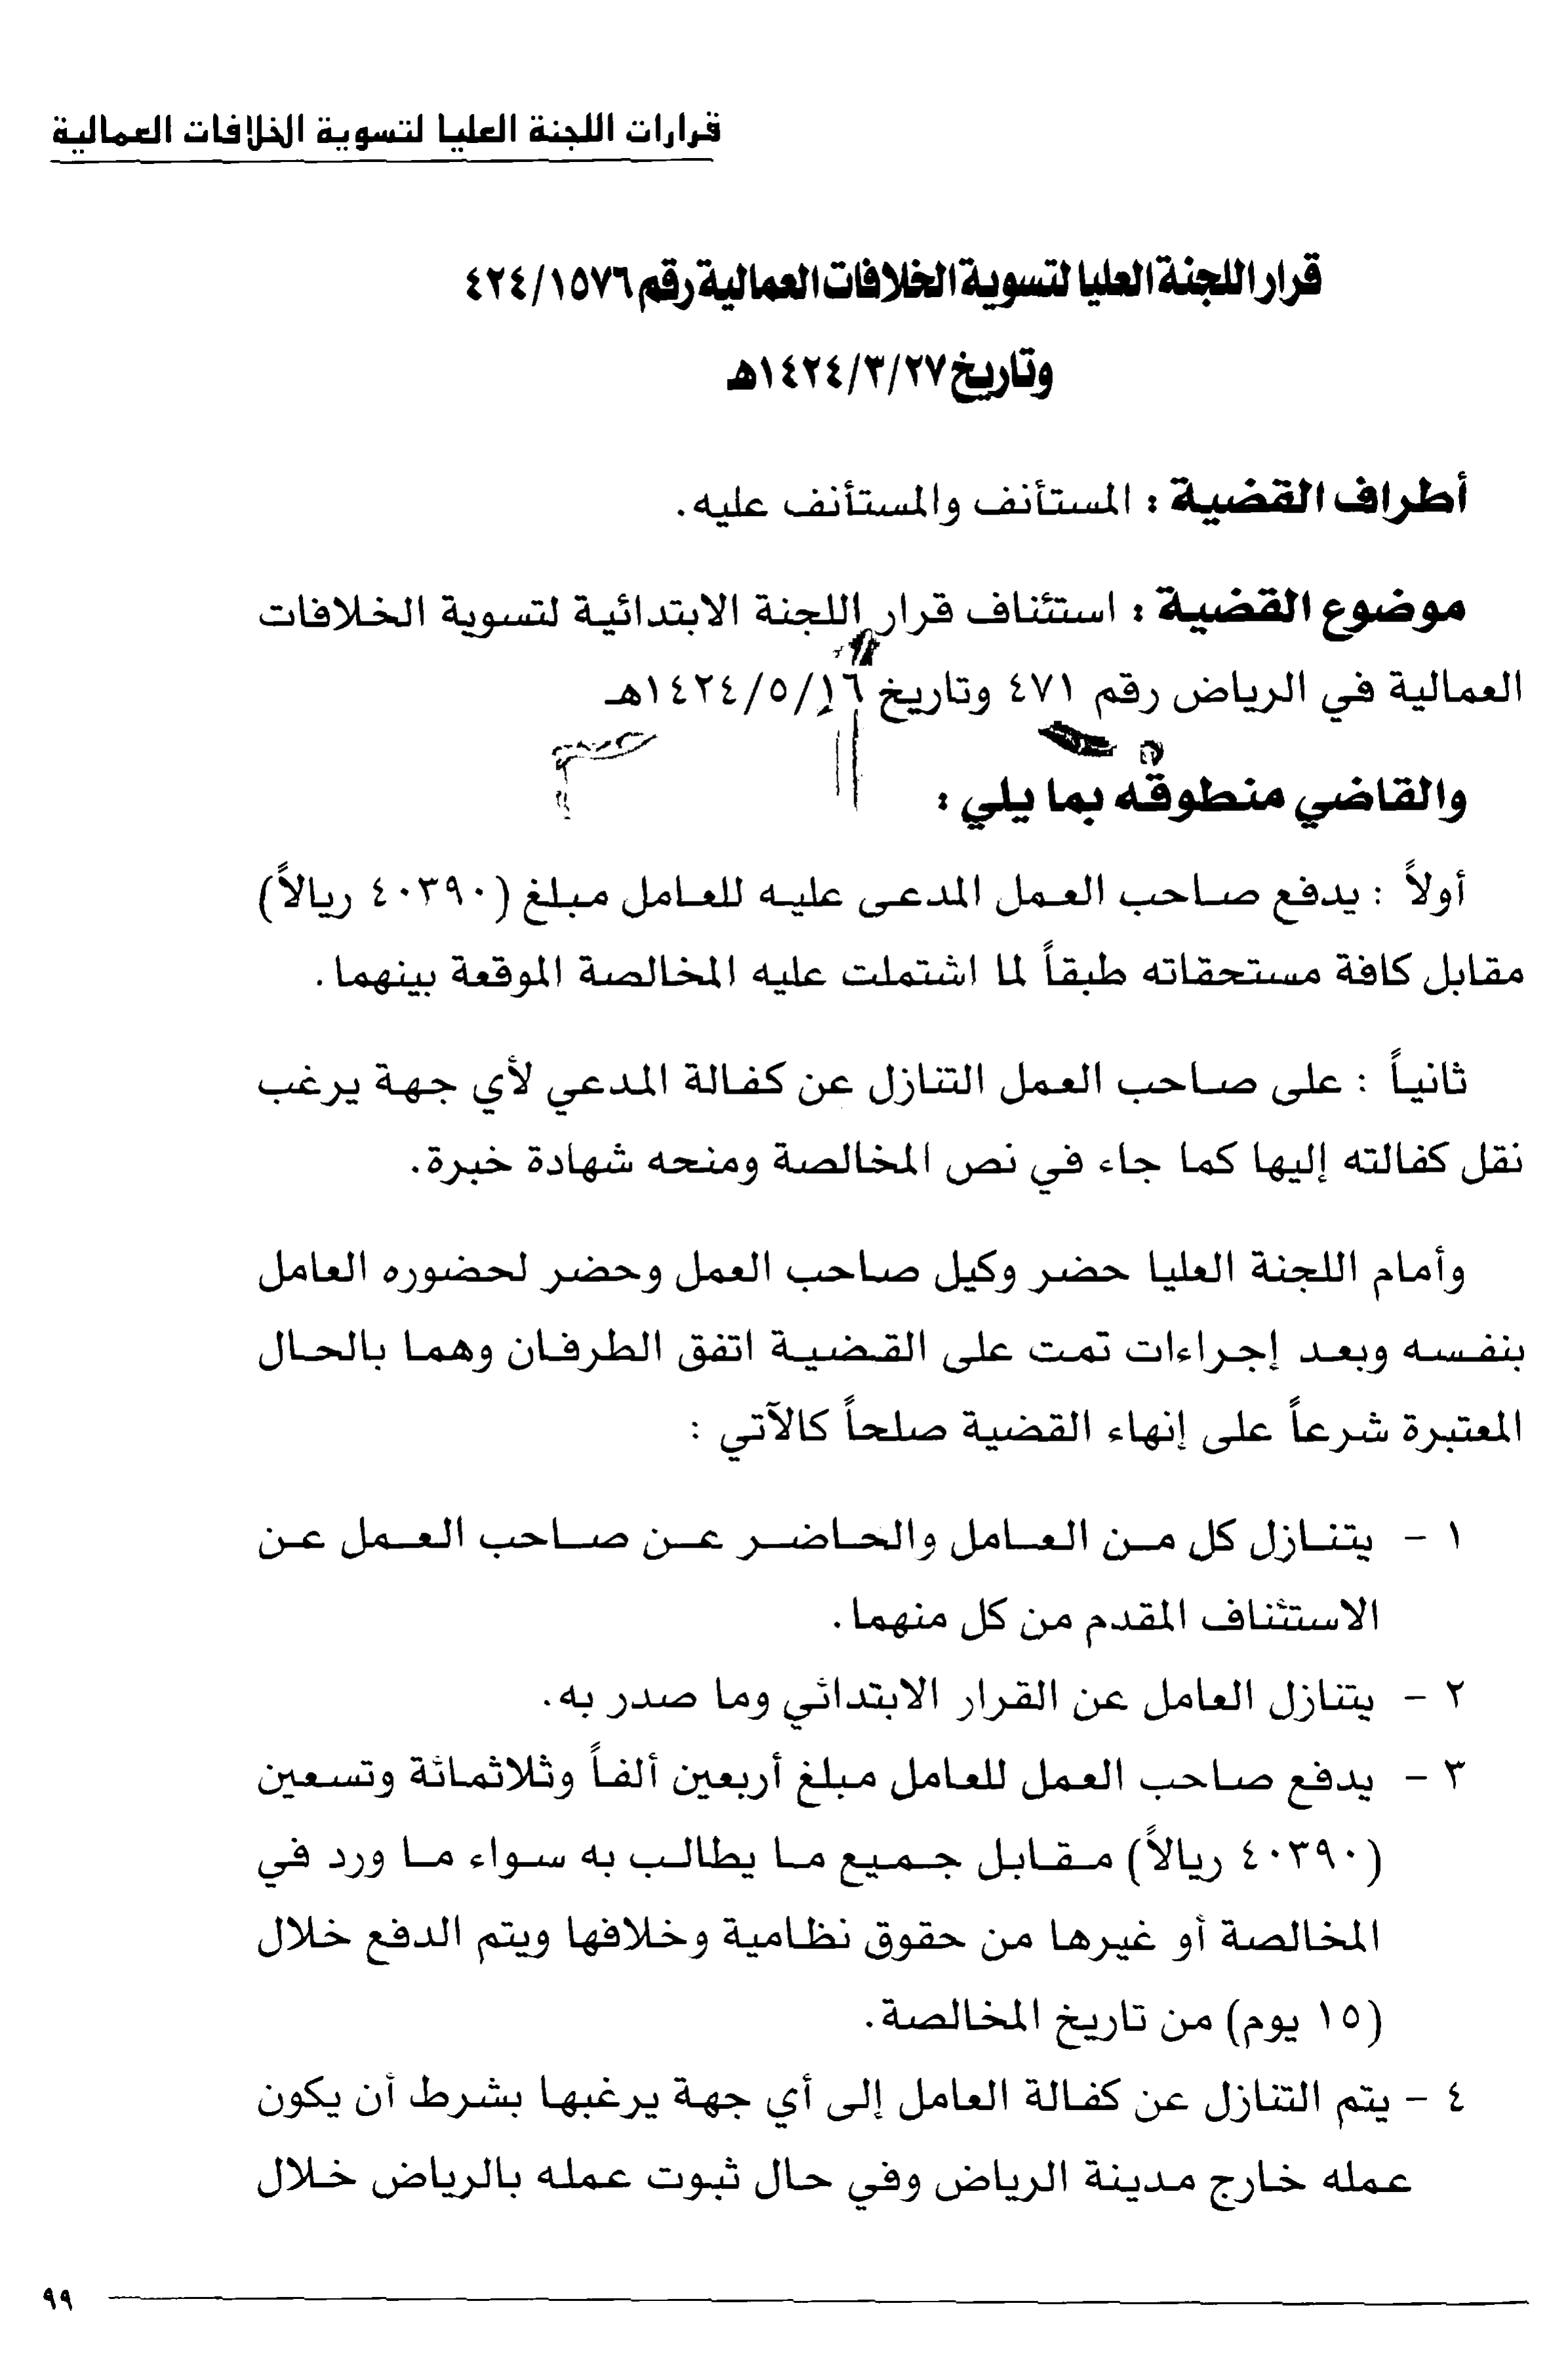 قرارات اللجنة العليا لتسوية الخلافات العمالية
قرار اللجنة العليا لتسوية الخلافات العمالية رقم ٤٢٤/١٥٧٦
وتاريخ ١٤٢٤/٣/٢٧هـ
أطراف القضية : المستأنف والمستأنف عليه.
موضوع القضية : استئناف قرار اللجنة الابتدائية لتسوية الخلافات
العمالية في الرياض رقم ٤٧١ وتاريخ ١٤٢٤/٥/١٦هـ
والقاضي منطوقه بما يلي :
أولاً : يدفع صاحب العمل المدعى عليه للعامل مبلغ (٤٠٣٩٠ ريالاً)
مقابل كافة مستحقاته طبقاً لما اشتملت عليه المخالصة الموقعة بينهما.
ثانياً : على صاحب العمل التنازل عن كفالة المدعي لأي جهة يرغب
نقل كفالته إليها كما جاء في نص المخالصة ومنحه شهادة خبرة.
وأمام اللجنة العليا حضر وكيل صاحب العمل وحضر لحضوره العامل
بنفسه وبعد إجراءات تمت على القضية اتفق الطرفان وهما بالحال
المعتبرة شرعاً على إنهاء القضية صلحاً كالآتي :
١ - يتنازل كل من العامل والحاضر عن صاحب العمل عن
الاستئناف المقدم من كل منهما.
٢ - يتنازل العامل عن القرار الابتدائي وما صدر به.
٣ - يدفع صاحب العمل للعامل مبلغ أربعين ألفاً وثلاثمائة وتسعين
(٤٠٣٩٠ ريالاً) مقابل جميع ما يطالب به سواء ما ورد في
المخالصة أو غيرها من حقوق نظامية وخلافها ويتم الدفع خلال
(١٥ يوم) من تاريخ المخالصة.
٤ - يتم التنازل عن كفالة العامل إلى أي جهة يرغبها بشرط أن يكون
عمله خارج مدينة الرياض وفي حال ثبوت عمله بالرياض خلال
٩٩